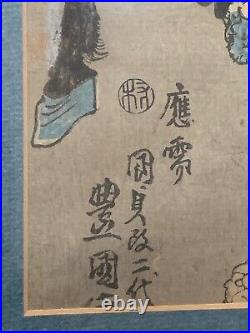 應需
國貞改二代
豊國
村